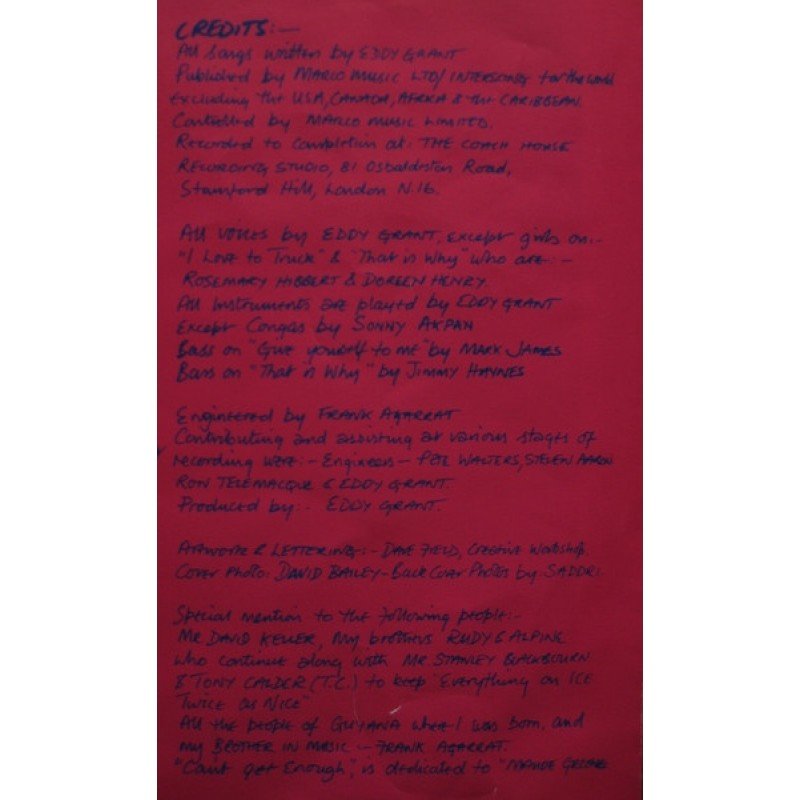 CREDITS:-
All songs written by EDDY GRANT
Published by MARCO MUSIC LTD/ INTERSONG for the world
excluding the USA, CANADA, AFRICA & the CARIBBEAN.
Controlled by MARCO MUSIC LIMITED.
Recorded to completion at: THE COACH HOUSE
RECORDING STUDIO, 81 Osbaldeston Road,
Stamford Hill, London N.16.
All VOICES by EDDY GRANT, except girls on:-
"I Love to Truck" & "That is Why" who are:-
ROSEMARY HIBBERT & DOREEN HENRY.
All Instruments are played by EDDY GRANT
Except Congas by SONNY AKPAN
Bass on "Give yourself to me" by MARK JAMES
Bass on "That is Why" by JIMMY HAYNES
Engineered by FRANK AGARRAT
Contributing and assisting at various stages of
recording were:- Engineers - PETE WALTERS, STEVEN AARON
RON TELEMACQUE & EDDY GRANT.
Produced by:- EDDY GRANT.
ARTWORK & LETTERING:- DAVE FIELD, Creative Workshop.
Cover Photo: DAVID BAILEY - Back Cover Photos by: SADDRI
Special mention to the following people:-
Mr DAVID KELLER, My brothers RUDY & ALPINE
who continue along with MR. STANLEY BLACKBOURN
& TONY CALDER (T.C.) to keep "Everything on ICE
Twice as Nice"
All the people of GUYANA where I was born, and
my BROTHER IN MUSIC - FRANK AGARRAT.
"Can't get Enough", is dedicated to "MAUDE